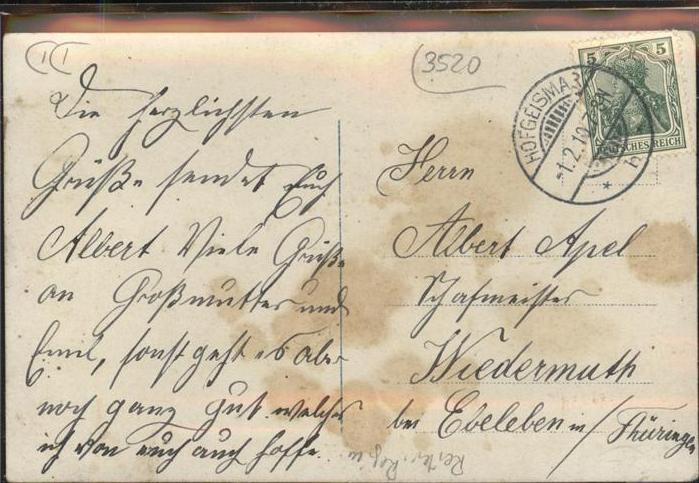 3520
Die herzlichsten
Grüße sendet Euch
Albert Viele Grüße
an Großmutter und
Emil, sonst geht es aber
noch ganz gut welches
ich von euch auch hoffe.
HOFGEISMAR
1.2.10.
b
*
5 5
DEUTSCHES REICH
Herrn
Albert Apel
Schafmeister
Wiedermuth
bei Ebeleben in/Thüringen